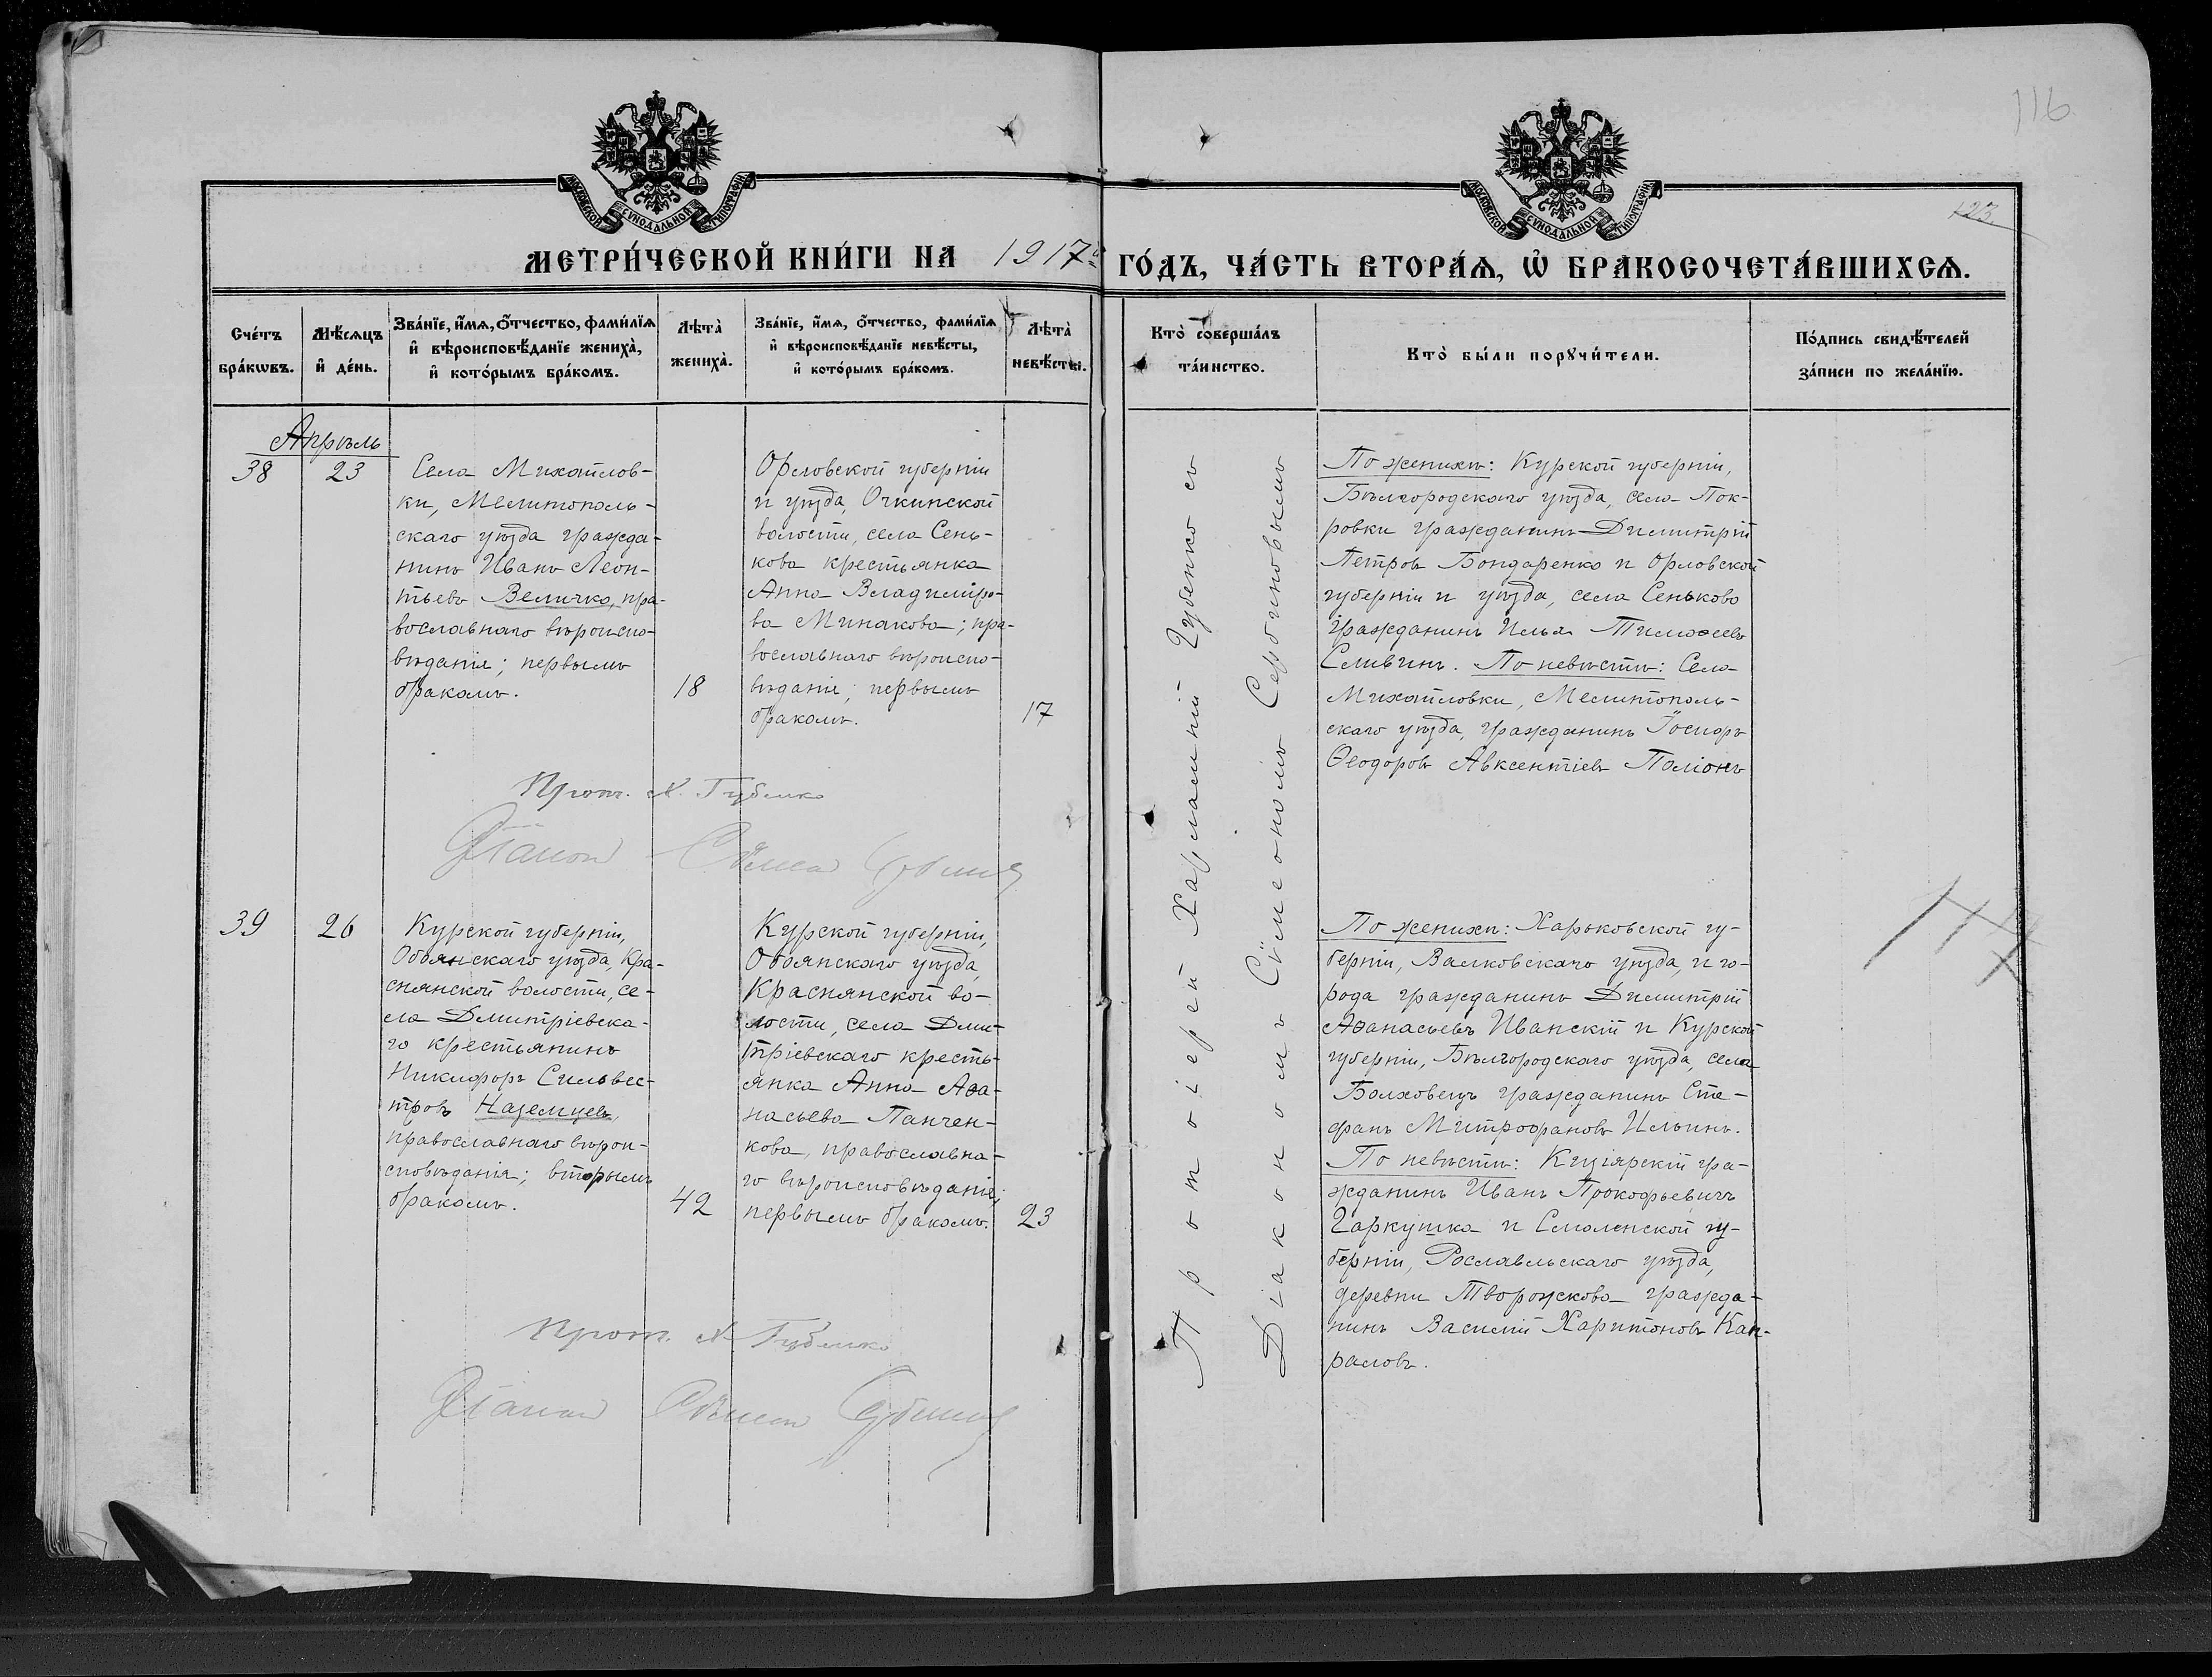 116
123
МОСКОВСКОЙ СѴНОДАЛЬНОЙ ТИПОГРАФІИ
МОСКОВСКОЙ СѴНОДАЛЬНОЙ ТИПОГРАФІИ
МЕТРИ́ЧЕСКОЙ КНИ́ГИ НА 1917й ГО́ДЪ, ЧА́СТЬ ВТОРА́Ѧ, Ѡ҆ БРАКОСОЧЕТА́ВШИХСѦ.
Сче́тъ
бра́кѡвъ.
Мѣ́сѧцъ
и҆ де́нь.
Зва́нїе, и҆́мѧ, ѻ҆́тчество, фами́лїѧ
и҆ вѣроисповѣ́данїе жениха̀,
и҆ кото́рымъ бра́комъ.
Лѣта̀
жениха̀.
Зва́нїе, и҆́мѧ, ѻ҆́тчество, фами́лїѧ
и҆ вѣроисповѣ́данїе невѣ́сты,
и҆ кото́рымъ бра́комъ.
Лѣта̀
невѣ́сты.
Кто̀ соверша́лъ
та́инство.
Кто̀ бы́ли порꙋчи́тели.
По́дпись свидѣ́телей
за́писи по жела́нїю.
Апрѣль
38
23
Села Михайлов-
ки, Мелитополь-
скаго уѣзда гражда-
нинъ Иванъ Леон-
тьевъ Величко, пра-
вославнаго вѣроиспо-
вѣданія; первымъ
бракомъ.
18
Орловской губерніи
и уѣзда, Очкинской
волости, села Сень-
кова крестьянка
Анна Владиміро-
ва Минакова; пра-
вославнаго вѣроиспо-
вѣданія; первымъ
бракомъ.
17
Прот. Х. Губенко
Діаконъ
Протоіерей Харлампій Губенко съ
Діакономъ Сѵмеономъ Сербиновымъ
По женихѣ: Курской губерніи,
Бѣлгородскаго уѣзда, села Пок-
ровки гражданинъ Димитрій
Петровъ Бондаренко и Орловской
губерніи и уѣзда, села Сеньково
гражданинъ Илья Тимоѳеевъ
Сливинъ. По невѣстѣ: Села
Михайловки, Мелитополь-
скаго уѣзда, гражданинъ Іосифъ
Ѳеодоровъ Авксентіевъ Поліонъ
39
26
Курской губерніи,
Обоянскаго уѣзда, Кра-
снянской волости, се-
ла Дмитріевска-
го крестьянинъ
Никифоръ Сильвес-
тровъ Наземцевъ,
православнаго вѣрои-
сповѣданія; вторымъ
бракомъ.
42
Курской губерніи,
Обоянскаго уѣзда,
Краснянской во-
лости, села Дми-
тріевскаго кресть-
янка Анна Аѳа-
насьева Панчен-
кова, православна-
го вѣроисповѣданія;
первымъ бракомъ.
23
Прот. Х. Губенко
Діаконъ
По женихѣ: Харьковской гу-
берніи, Валковскаго уѣзда, и го-
рода гражданинъ Димитрій
Аѳанасьевъ Иванскій и Курской
губерніи, Бѣлгородскаго уѣзда, села
Болховецъ гражданинъ Сте-
фанъ Митрофановъ Ильинъ.
По невѣстѣ: Кизіярскій гра-
жданинъ Иванъ Прокофьевичъ
Гаркушка и Смоленской гу-
берніи, Рославльскаго уѣзда,
деревни Творожково гражда-
нинъ Василій Харитоновъ Кап-
раловъ.